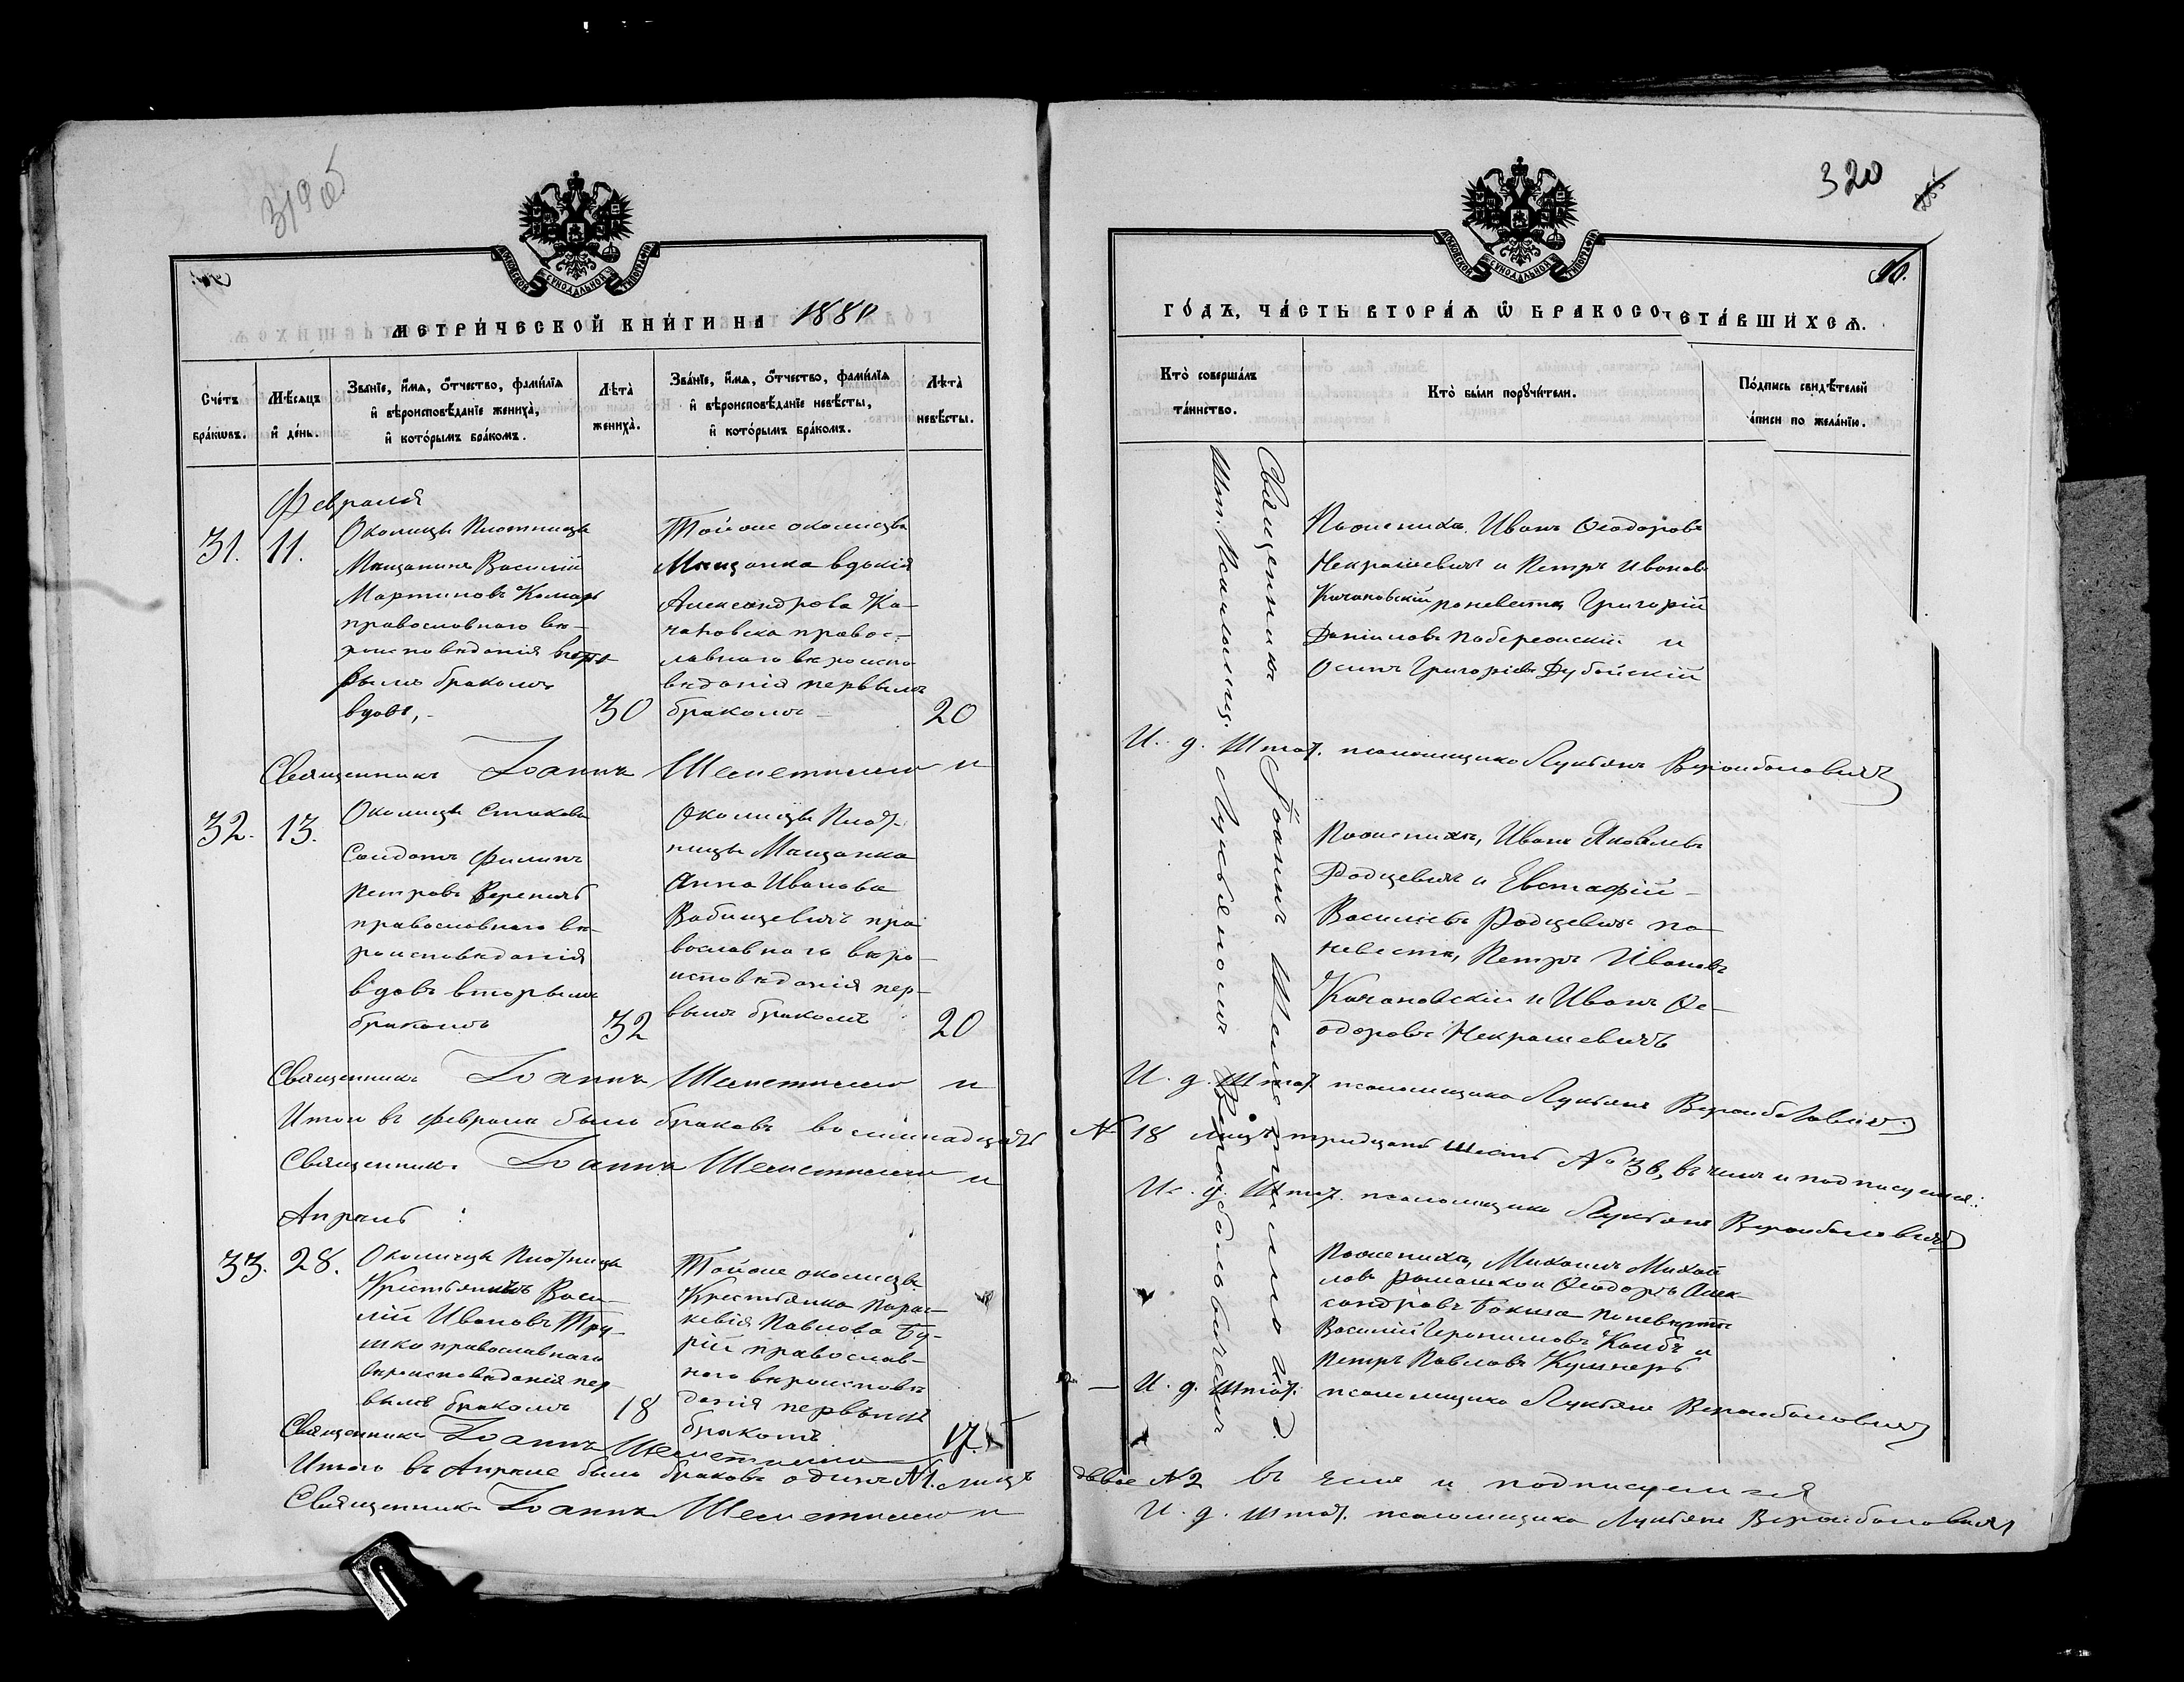 319 об
МЕТРИ́ЧЕСКОЙ КНИ́ГИ НА 1880
Сче́тъ бра́кѡвъ.
Мѣ́сяцъ и҆ де́нь.
Зва́нїе, и҆́мѧ, ѻ҆́тчество, фами́лїѧ
и҆ вѣроисповѣ́данїе жениха̀,
и҆ кото́рымъ бра́комъ.
Лѣта̀
жениха̀.
Зва́нїе, и҆́мѧ, ѻ҆́тчество, фами́лїѧ
и҆ вѣроисповѣ́данїе невѣ́сты,
и҆ кото́рымъ бра́комъ.
Лѣта̀
невѣ́сты.
Февраля
31. 11.
Околицы Плотницы
Мещанинъ Василій
Мартиновъ Комаръ
православнаго вѣ-
роисповѣданія пер-
вымъ бракомъ
вдовъ,
30
Тойже околицы
Мещанка
Александрова Ка-
чановска правос-
лавнаго вѣроиспо
вѣданія первымъ
бракомъ
20
Священникъ Іоаннъ Шеметилло и
32. 13.
Околицы
Солдатъ Филипъ
Петровъ Веремчъ
православнаго вѣ-
роисповѣданія
вдовъ вторымъ
бракомъ
32
Околицы Плот
ницы Мещанка
Анна Иванова
Вабищевичъ пра
вославнаго вѣро-
исповѣданія пер-
вымъ бракомъ
20
Священникъ Іоаннъ Шеметилло и
Итого въ Февралѣ было браковъ восемнадцать
Священникъ Іоаннъ Шеметилло и
Апрѣль
33. 28.
Околицы Плотницы
Крестьянинъ Васи-
лій Ивановъ Тру-
шко православнаго
вѣроисповѣданія пер
вымъ бракомъ
18
Тойже околицы
Крестьянка Парас-
кевія Павлова Бу-
рій православ-
наго вѣроисповѣ
данія первымъ
бракомъ
17.
Священникъ Іоаннъ Шеметилло
Итого въ Апрѣлѣ было браковъ одинъ №1. лицъ
Священникъ Іоаннъ Шеметилло и
320
ГО́ДЪ, ЧА́СТЬ ВТОРА́Ѧ Ѡ҆ БРАКОСОЧЕТА́ВШИХСѦ.
Кто̀ соверша́лъ
та́инство.
Кто̀ бы́ли порꙋчи́тели.
По́дпись свидѣ́телей
за́писи по жела́нїю.
Священникъ Іоаннъ Шеметилло и
Шт. Псаломщ. Лукьяномъ Вержболовичемъ
По женихѣ Иванъ Ѳеодоровъ
Некрашевичъ и Петръ Ивановъ
Качановскій по невестѣ Григорій
Даніиловъ Побережскій и
Осипъ Григоріевъ Дубойскій
И. д. Штат. псаломщика Лукьянъ Вержболовичъ
По женихѣ, Иванъ Яковлевъ
Родцевичъ и Евстафій
Васильевъ Родцевичъ по
невестѣ, Петръ Ивановъ
Качановскій и Иванъ Ѳе-
одоровъ Некрашевичъ
И. д. Штат. псаломщика Лукьянъ Вержболовичъ
№ 18 лицъ тридцать шесть № 36, въ чемъ и подписуемся:
И. д. Штат. псаломщика Лукьянъ Вержболовичъ
По женихѣ, Михаилъ Михай
ловъ Ромашко и Ѳеодоръ Алек-
сандровъ Бокиза по невѣстѣ
Василій Иеронимовъ Колбъ и
Петръ Павловъ Кушнеръ
И. д. Штат. псаломщика Лукьянъ Вержболовичъ
двое №2 въ чемъ и подписуемся
И. д. Штат. псаломщика Лукьянъ Вержболовичъ